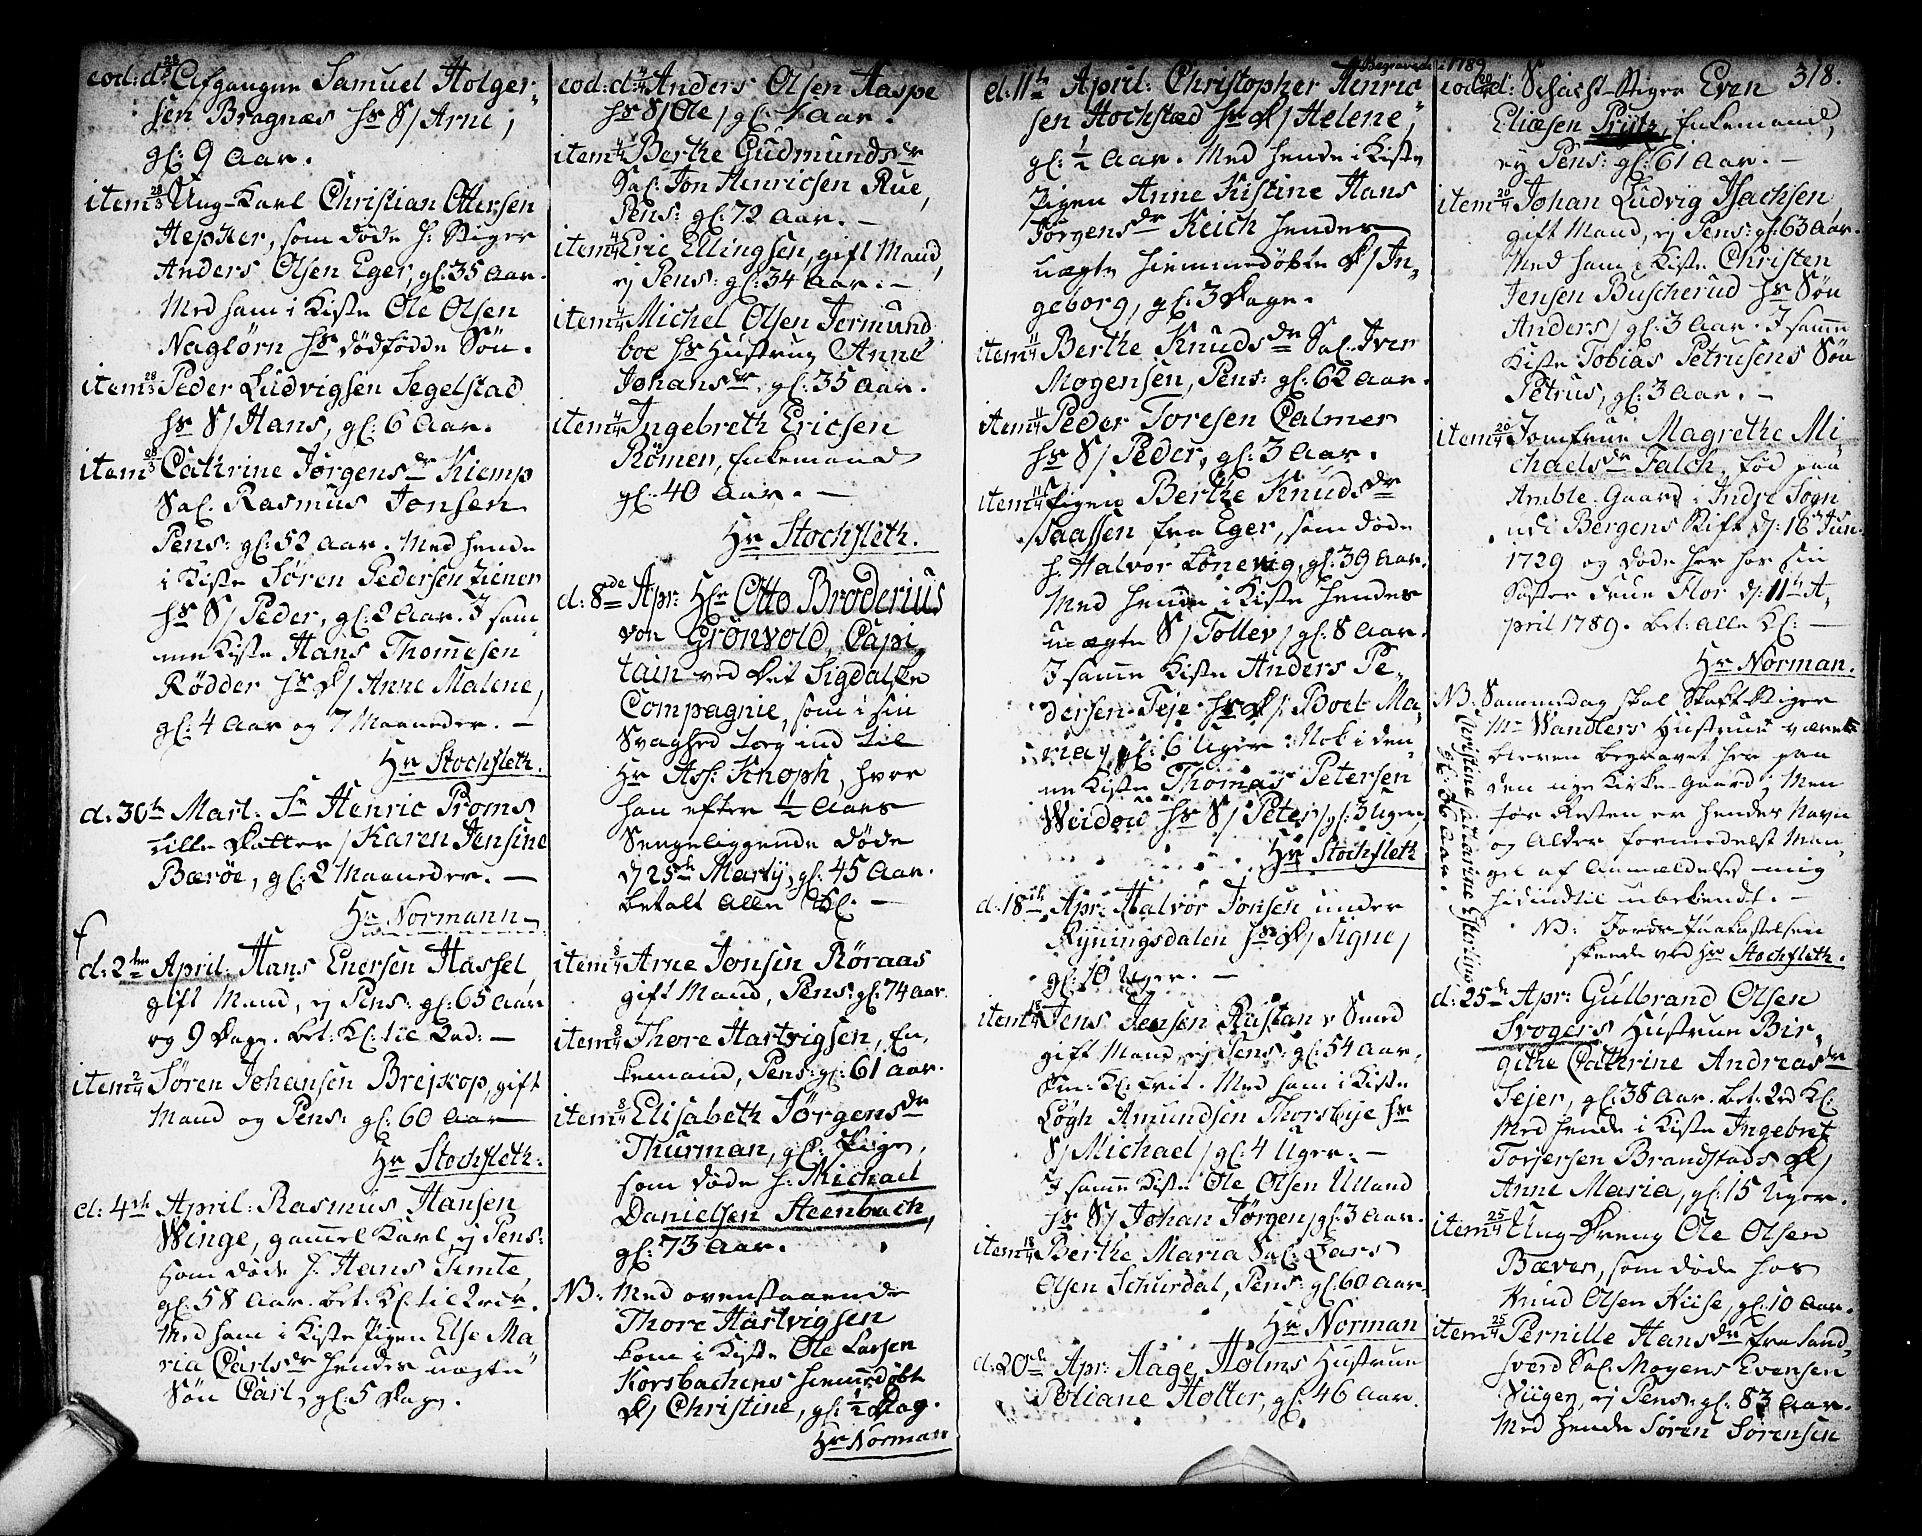 eod: d: 28/3 Afgangne Samuel Holger-
sen Bragnæs hs S/ Arne,
gl: 9 Aar.
item 28/3 Ung-Karl Christian Ottersen
Hepker, som døde h. Stiger
Anders Olsen Eger, gl: 35 Aar.
Med ham i Kiste Ole Olsen
Naglørn hs dødfødde Søn.
item 28/3 Peder Ludvigsen Segelstad
hs S/ Hans, gl: 6 Aar.
item 28/3 Cathrine Jørgensdr Kiemp
Sal. Rasmus Jonsen
Pens: gl: 52 Aar. Med hende
i Kiste Søren Pedersen Ziener
hs S/ Peder, gl: 2 Aar. I sam-
me Kiste Hans Thomesen
Rødder hs D/ Anne Malene,
gl: 4 Aar og 7 Maaneder. —
Hr Stochfleth.
d: 30th Mart: Sr Henric Proms
lille Datter / Karen Jensine
Bærøe, gl: 2 Maaneder. —
Hr Normann
d: 2den April: Hans Enersen Hassel,
gift Mand, ej Pens: gl: 65 Aar
og 9 Dage. bet: Kl: til 2od: —
item 2/4 Søren Johansen Brejkop, gift
Mand og Pens: gl: 60 Aar
Hr Stochfleth.
d: 4th April: Rasmus Hansen
Winge, gammel Karl, ej Pens:
som døde h. Hans Timte,
gl: 58 Aar. bet: Kl: til 2den.
Med ham i Kiste Pigen Else Ma-
ria Carlsdr hendes uægte
Søn Carl, gl: 5 Dage.
eod: d: 4/4 Anders Olsen Haspe
hs S/ Ole, gl: 1 Aar.
item 4/4 Berthe Gudmundsdr
Sal. Jon Henricsen Rue,
Pens: gl: 72 Aar. —
item 4/4 Eric Ellingsen, gift Mand,
ej Pens: gl: 34 Aar. —
item 4/4 Michel Olsen Jermund
boe hs Hustrue Anne
Johansdr, gl: 35 Aar.
item 4/4 Ingebreth Ericsen
Rømen, Enkemand
gl: 40 Aar. —
Hr Stochfleth.
d: 8de Apr: Hr Otto Broderius
von Grönvold, Capi-
tain ved Det Sigdalske
Compagnie, som i sin
Svaghed tog ind til
Hr Ass: Knoph, hvor
han efter 1/2 Aars
Sengeliggende døde
d 25th Martij, gl: 45 Aar.
betalt Alle Kl. —
item 8/4 Arne Jonsen Røraas
gift Mand, Pens: gl: 74 Aar.
item 8/4 Thore Hartvigsen, En-
kemand, Pens: gl: 61 Aar.
item 8/4 Elisabeth Jørgensdr
Thurman, gl: Pige,
som døde h. Michael
Danielsen Steenbach,
gl: 73 Aar.
NB: Med ovenstaaende
Thore Hartvigsen
kom i Kiste Ole Larsen
Korsbachens hiemmedøbt
D/ Christine, gl: 1/2 Dag.
Hr Norman
Begravede 1789
d: 11th April: Christopher Henric-
sen Hochstæd hs D/ Helene,
gl: 1/2 Aar. Med hende i Kiste
Pigen Anne Kistine Hans
Jørgensdr Keich hendes
uægte hiemmedøbte D/ In-
geborg, gl: 3 Dage.
item 11/4 Berthe Knudsdr Sal. Iver
Mogensen, Pens: gl: 62 Aar.
item 11/4 Peder Toresen Calmer
hs S/ Peder, gl: 3 Aar.
item 11/4 Pigen Berthe Knudsdr
Saassen fra Eger, som døde
h. Halvor Lønevig, gl: 39 Aar.
Med hende i Kiste hendes
uægte S/ Tollev / gl: 8 Aar.
I samme Kiste Anders Pe-
dersen Teje hs D/ Boel Ma-
ria, gl: 6 Uger: Nok i den-
ne Kiste Thomas Petersen
Weidow hs S/ Peter, gl: 3 Uger,
Hr Stochfleth
d: 18th Apr: Halvor Jonsen under
Ryningsdalen hs D/ Signe,
gl: 10 Uger. —
item 18/4 Jens Jensen Rustan v Smed
gift Mand, ej Pens: gl: 54 Aar,
Med ham i Kiste
Løgh Amundsen Thorsbye hs
S/ Michael / gl: 4 Uger. —
I samme Kiste Ole Olsen Ulland
hs S/ Johan Jørgen, gl: 3 Aar.
item 18/4 Berthe Maria Sal: Lars
Olsen Schurdal, Pens: gl: 60 Aar.
Hr Norman
d: 20th Apr: Aage Holms Hustrue
Poliane Holter, gl: 46 Aar.
318.
eod: d: 20/4 Schacht-Stiger Even
Eliæsen Prytz, Enkemand,
ej Pens: gl: 61 Aar. —
item 20/4 Johan Ludvig Isachsen,
gift Mand, ej Pens: gl: 63 Aar.
Med ham i Kiste Christen
Jensen Buscherud hs Søn
Anders, gl: 3 Aar. I samme
Kiste Tobias Petrusens Søn
Petrus, gl: 3 Aar. —
item 20/4 Jomfrue Magrethe Mi-
chaelsdr Falch, fød paa
Amble-Gaard i Indre Sogn
udi Bergens Stift d: 16 Jun:
1729 og døde her hos sin
Søster Frue Flor d: 11th A-
pril 1789. bet: alle Kl: —
Hr Norman.
NB: Sammedag skal Skaft Stiger
Mr Wandlers Hustrue være
bleven begravet her paa
den nye Kirke-Gaard; Men
før Resten er hendes Navn
og Alder formedelst Man-
gel af Anmeldelse mig
hidindtil ubekendt. —
NB: Jords-Paakastelsen
skeede ved Hr Stochfleth.
Christine Cathrine Esterling
gl: 36 Aar.
d: 25th Apr: Gulbrand Olsen
Svogers Hustrue Bir-
githe Cathrine Andreasdr
Sejer, gl: 38 Aar. bet: 2od Kl:
Med hende i Kiste Ingebret
Torjersen Brandstads D/
Anne Maria, gl: 15 Uger.
item 25/4 Ung-Dreng Ole Olsen
Bæver, som døde hos
Knud Olsen Kiise, gl: 10 Aar.
item 25/4 Pernille Hansdr fra Sand-
sværd Sal. Mogens Evensen
Stiger, ej Pens: gl: 83 Aar.
Med hende Søren Sørensen